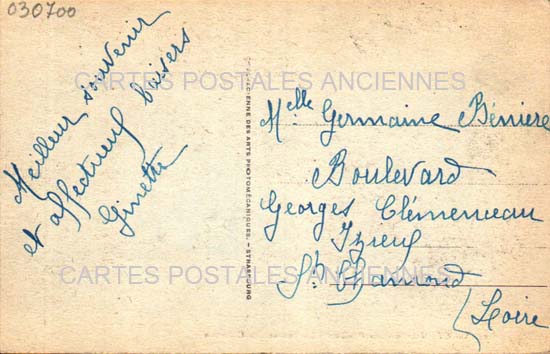 030700
Meilleur souvenir
et affectueux baisers
Ginette
CARTES POSTALES ANCIENNES
CARTES POSTALES ANCIENNES
ALSACIENNE DES ARTS PHOTOMÉCANIQUES. — STRASBOURG
Melle Germaine Bénière
Boulevard
Georges Clémenceau
Izieux
St Chamond
(Loire